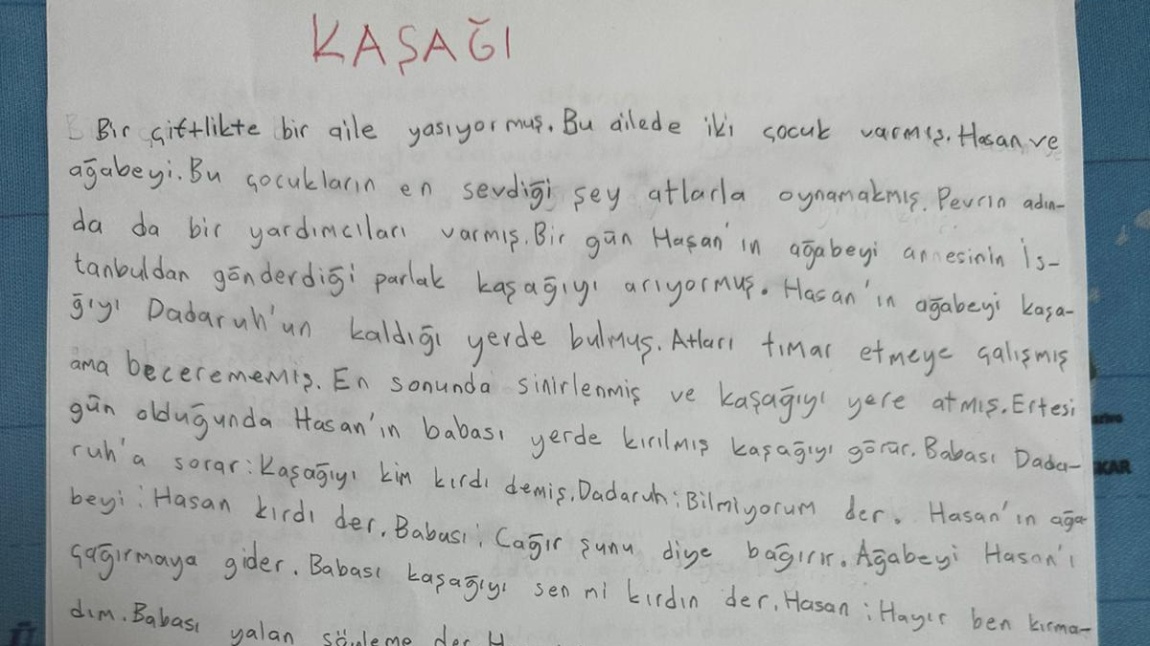 KAŞAĞI
Bir çiftlikte bir aile yasıyormuş. Bu ailede iki çocuk varmış. Hasan ve
ağabeyi. Bu çocukların en sevdiği şey atlarla oynamakmış. Pevrin adın-
da da bir yardımcıları varmış. Bir gün Haşan'ın ağabeyi annesinin İs-
tanbuldan gönderdiği parlak kaşağıyı arıyormuş. Hasan'ın ağabeyi kaşa-
ğıyı Dadaruh'un kaldığı yerde bulmuş. Atları tımar etmeye çalışmış
ama becerememiş. En sonunda sinirlenmiş ve kaşağıyı yere atmış. Ertesi
gün olduğunda Hasan'ın babası yerde kırılmış kaşağıyı görür. Babası Dada-
ruh'a sorar: Kaşağıyı kim kırdı demiş. Dadaruh: Bilmiyorum der. Hasan'ın ağa
beyi: Hasan kırdı der. Babası: Çağır şunu diye bağırır. Ağabeyi Hasan'ı
çağırmaya gider. Babası kaşağıyı sen mi kırdın der. Hasan: Hayır ben kırma-
dım. Babası yalan söyleme der
KAR
Ü